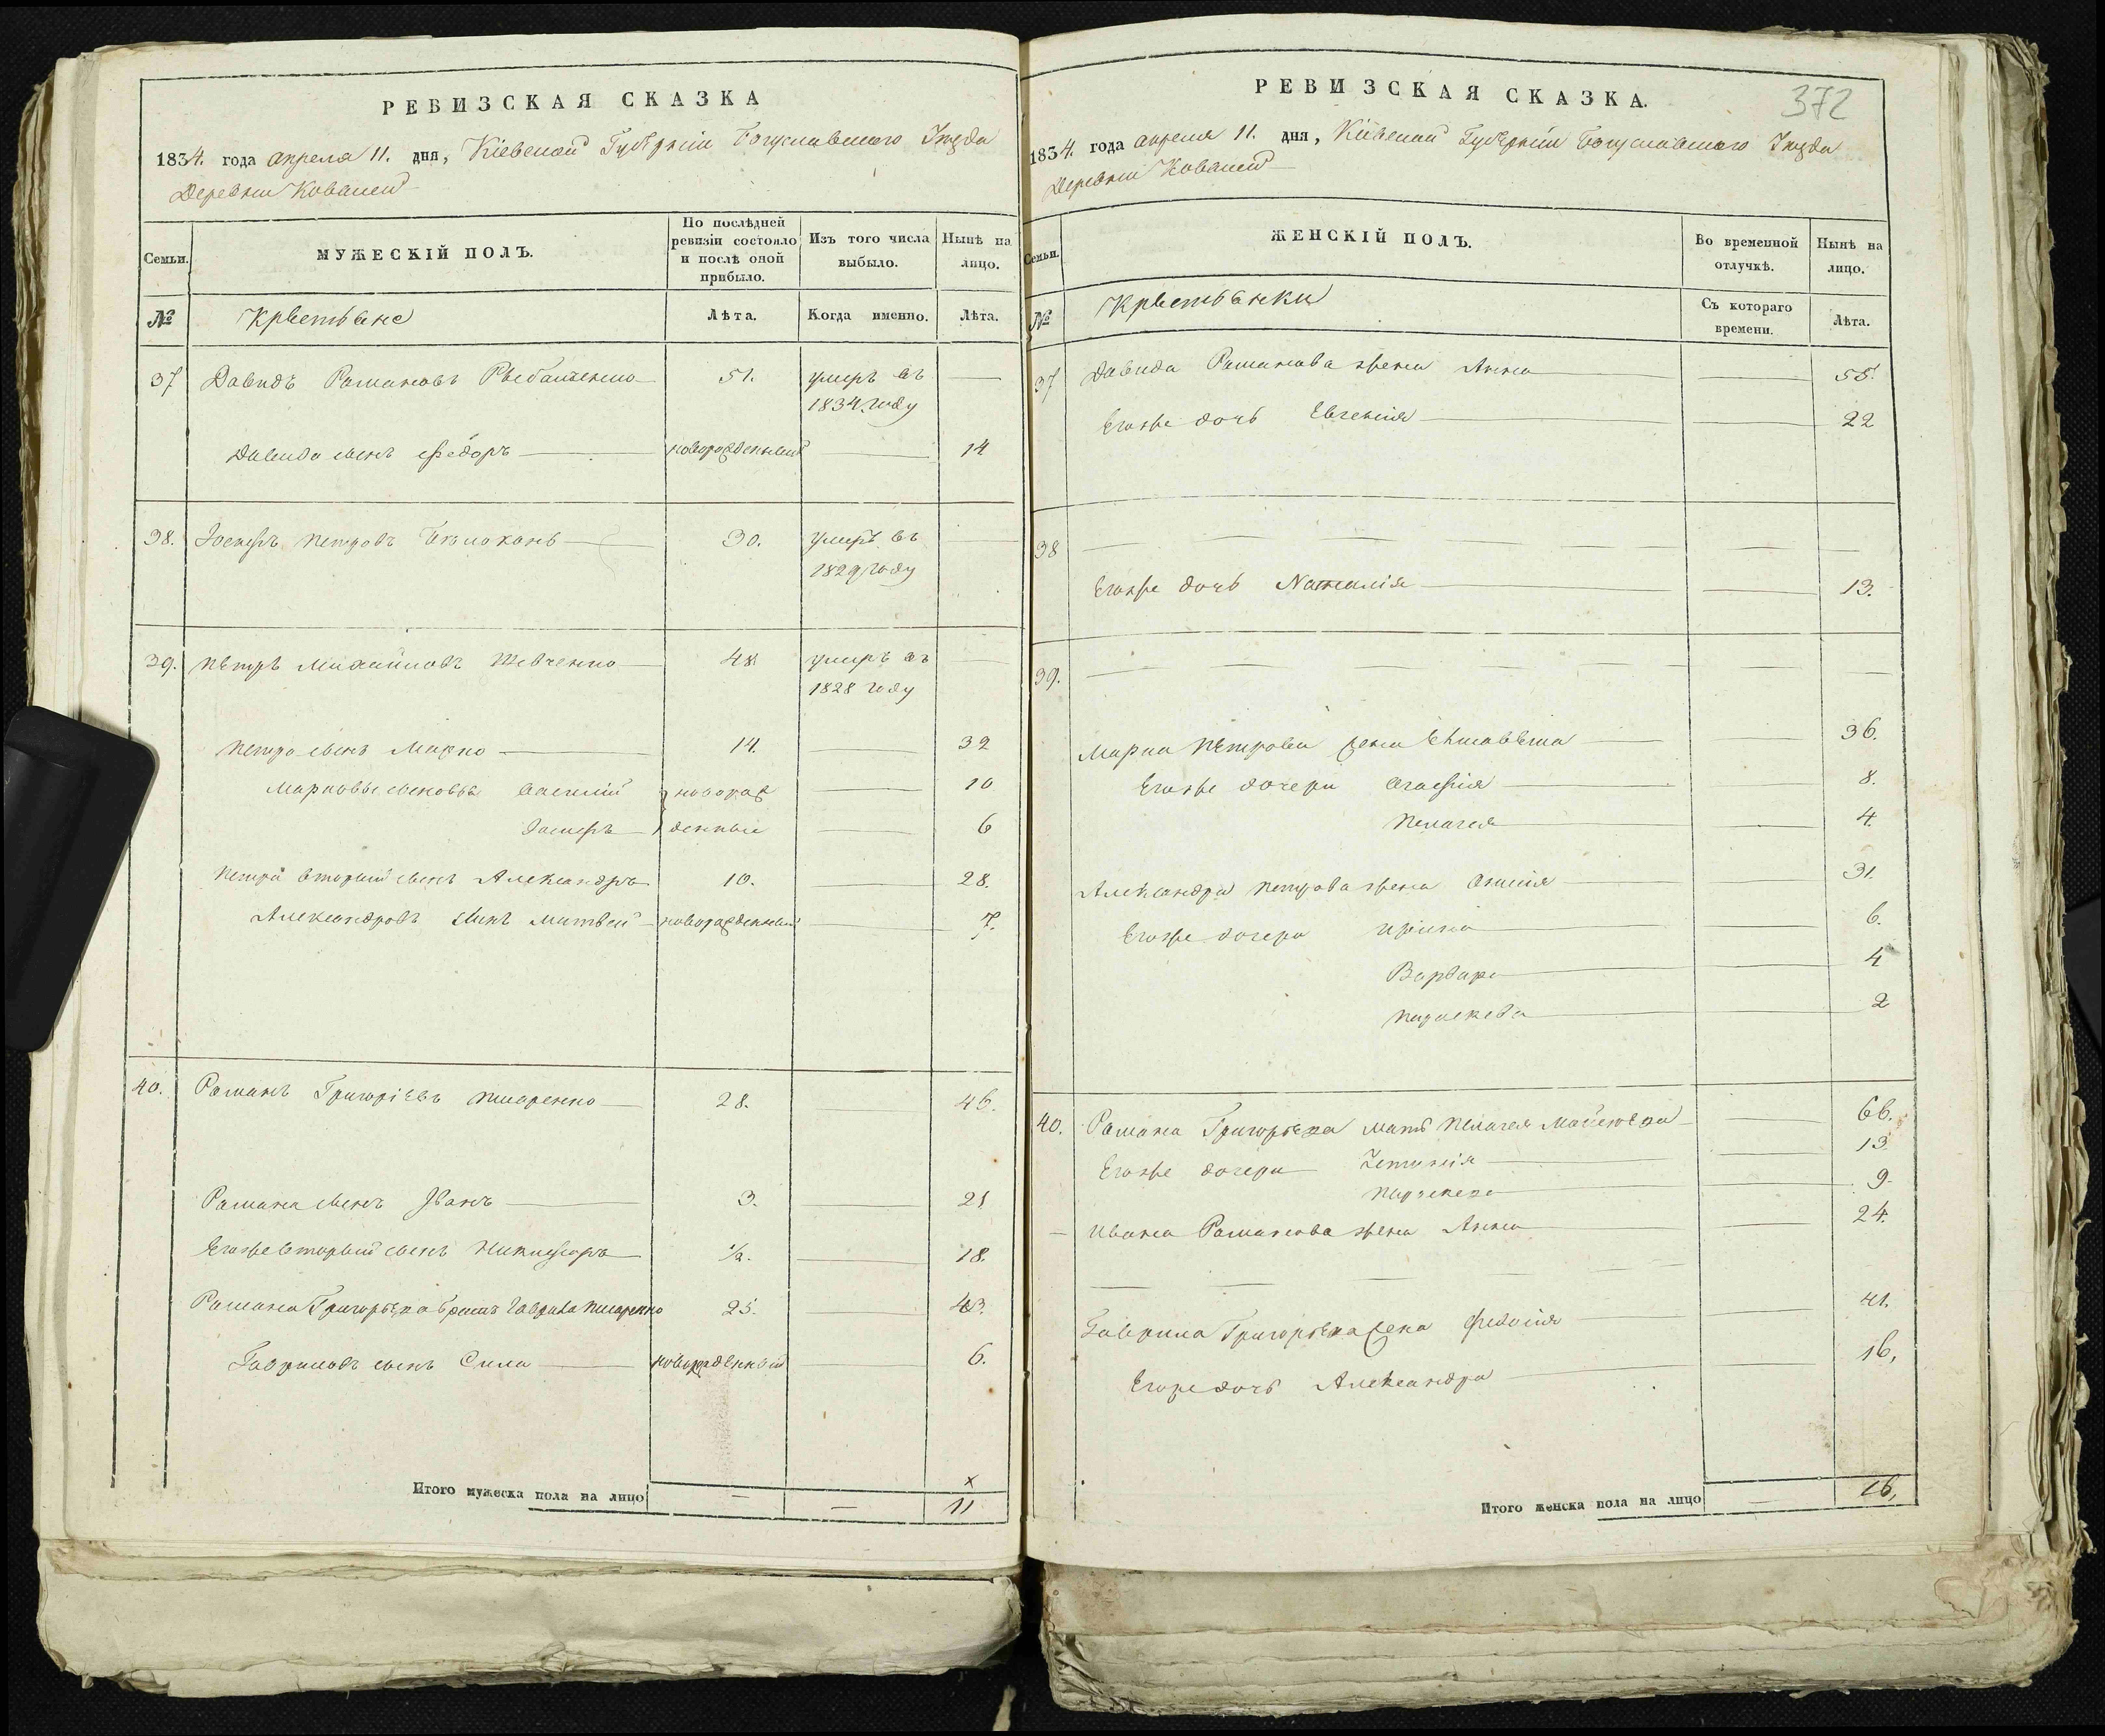 РЕВИЗСКАЯ СКАЗКА
1834. года апреля 11. дня, Кіевской Губерніи Богуславского Уезда
Деревни
Семьи.
МУЖЕСКІЙ ПОЛЪ.
По послѣдней ревизіи состояло и послѣ оной прибыло.
Изъ того числа выбыло.
Нынѣ на лицо.
№
Крестьяне
Лѣта.
Когда именно.
Лѣта.
37 Давидъ Романовъ 51. умеръ въ
1834. году
Давида сынъ Федоръ новорожденный 14
38. Іосифъ Петровъ 30. умеръ въ
1829 году
39. Петръ Михайловъ Шевченко 48 умеръ въ
1828 году
Петра сынъ Марко 14. 32
Марковы сыновья Василій новорож 10
Іосифъ денные 6
Петра вторый сынъ Александръ 10. 28.
Александровъ сынъ Матвей новорожденный 7.
40. Романъ Григоріевъ Писаренко 28. 46.
Романа сынъ Иванъ 3. 21
Егоже вторый сынъ Никифоръ ½. 18.
Романа Григорьева братъ Гаврила Писаренко 25. 43.
Гавриловъ сынъ Сила новорожденный 6.
Итого мужеска пола на лицо
х
11
РЕВИЗСКАЯ СКАЗКА.
372
1834. года апреля 11. дня, Кіевской Губерніи Богуславского Уезда
Деревни
Семьи.
ЖЕНСКІЙ ПОЛЪ.
Во временной отлучкѣ.
Нынѣ на лицо.
№
Крестьянки
Съ котораго времени.
Лѣта.
37 Давида Романова жена Анна 55.
Егоже дочь Евгенія 22
38
Егоже дочь Наталія 13.
39.
Марка Петрова жена Елисавета 36.
Егоже дочери Агафія 8.
Пелагея 4.
Александра Петрова жена 31.
Егоже дочери Ирина 6.
Варвара 4
Параскева 2
40. Романа Григорьева мать Пелагея 66.
Егоже дочери 13
Параскева 9.
Ивана Романова жена Анна 24.
Гаврила Григорьева жена Феодосія 41.
Егоже дочь Александра 16,
Итого женска пола на лицо 16,